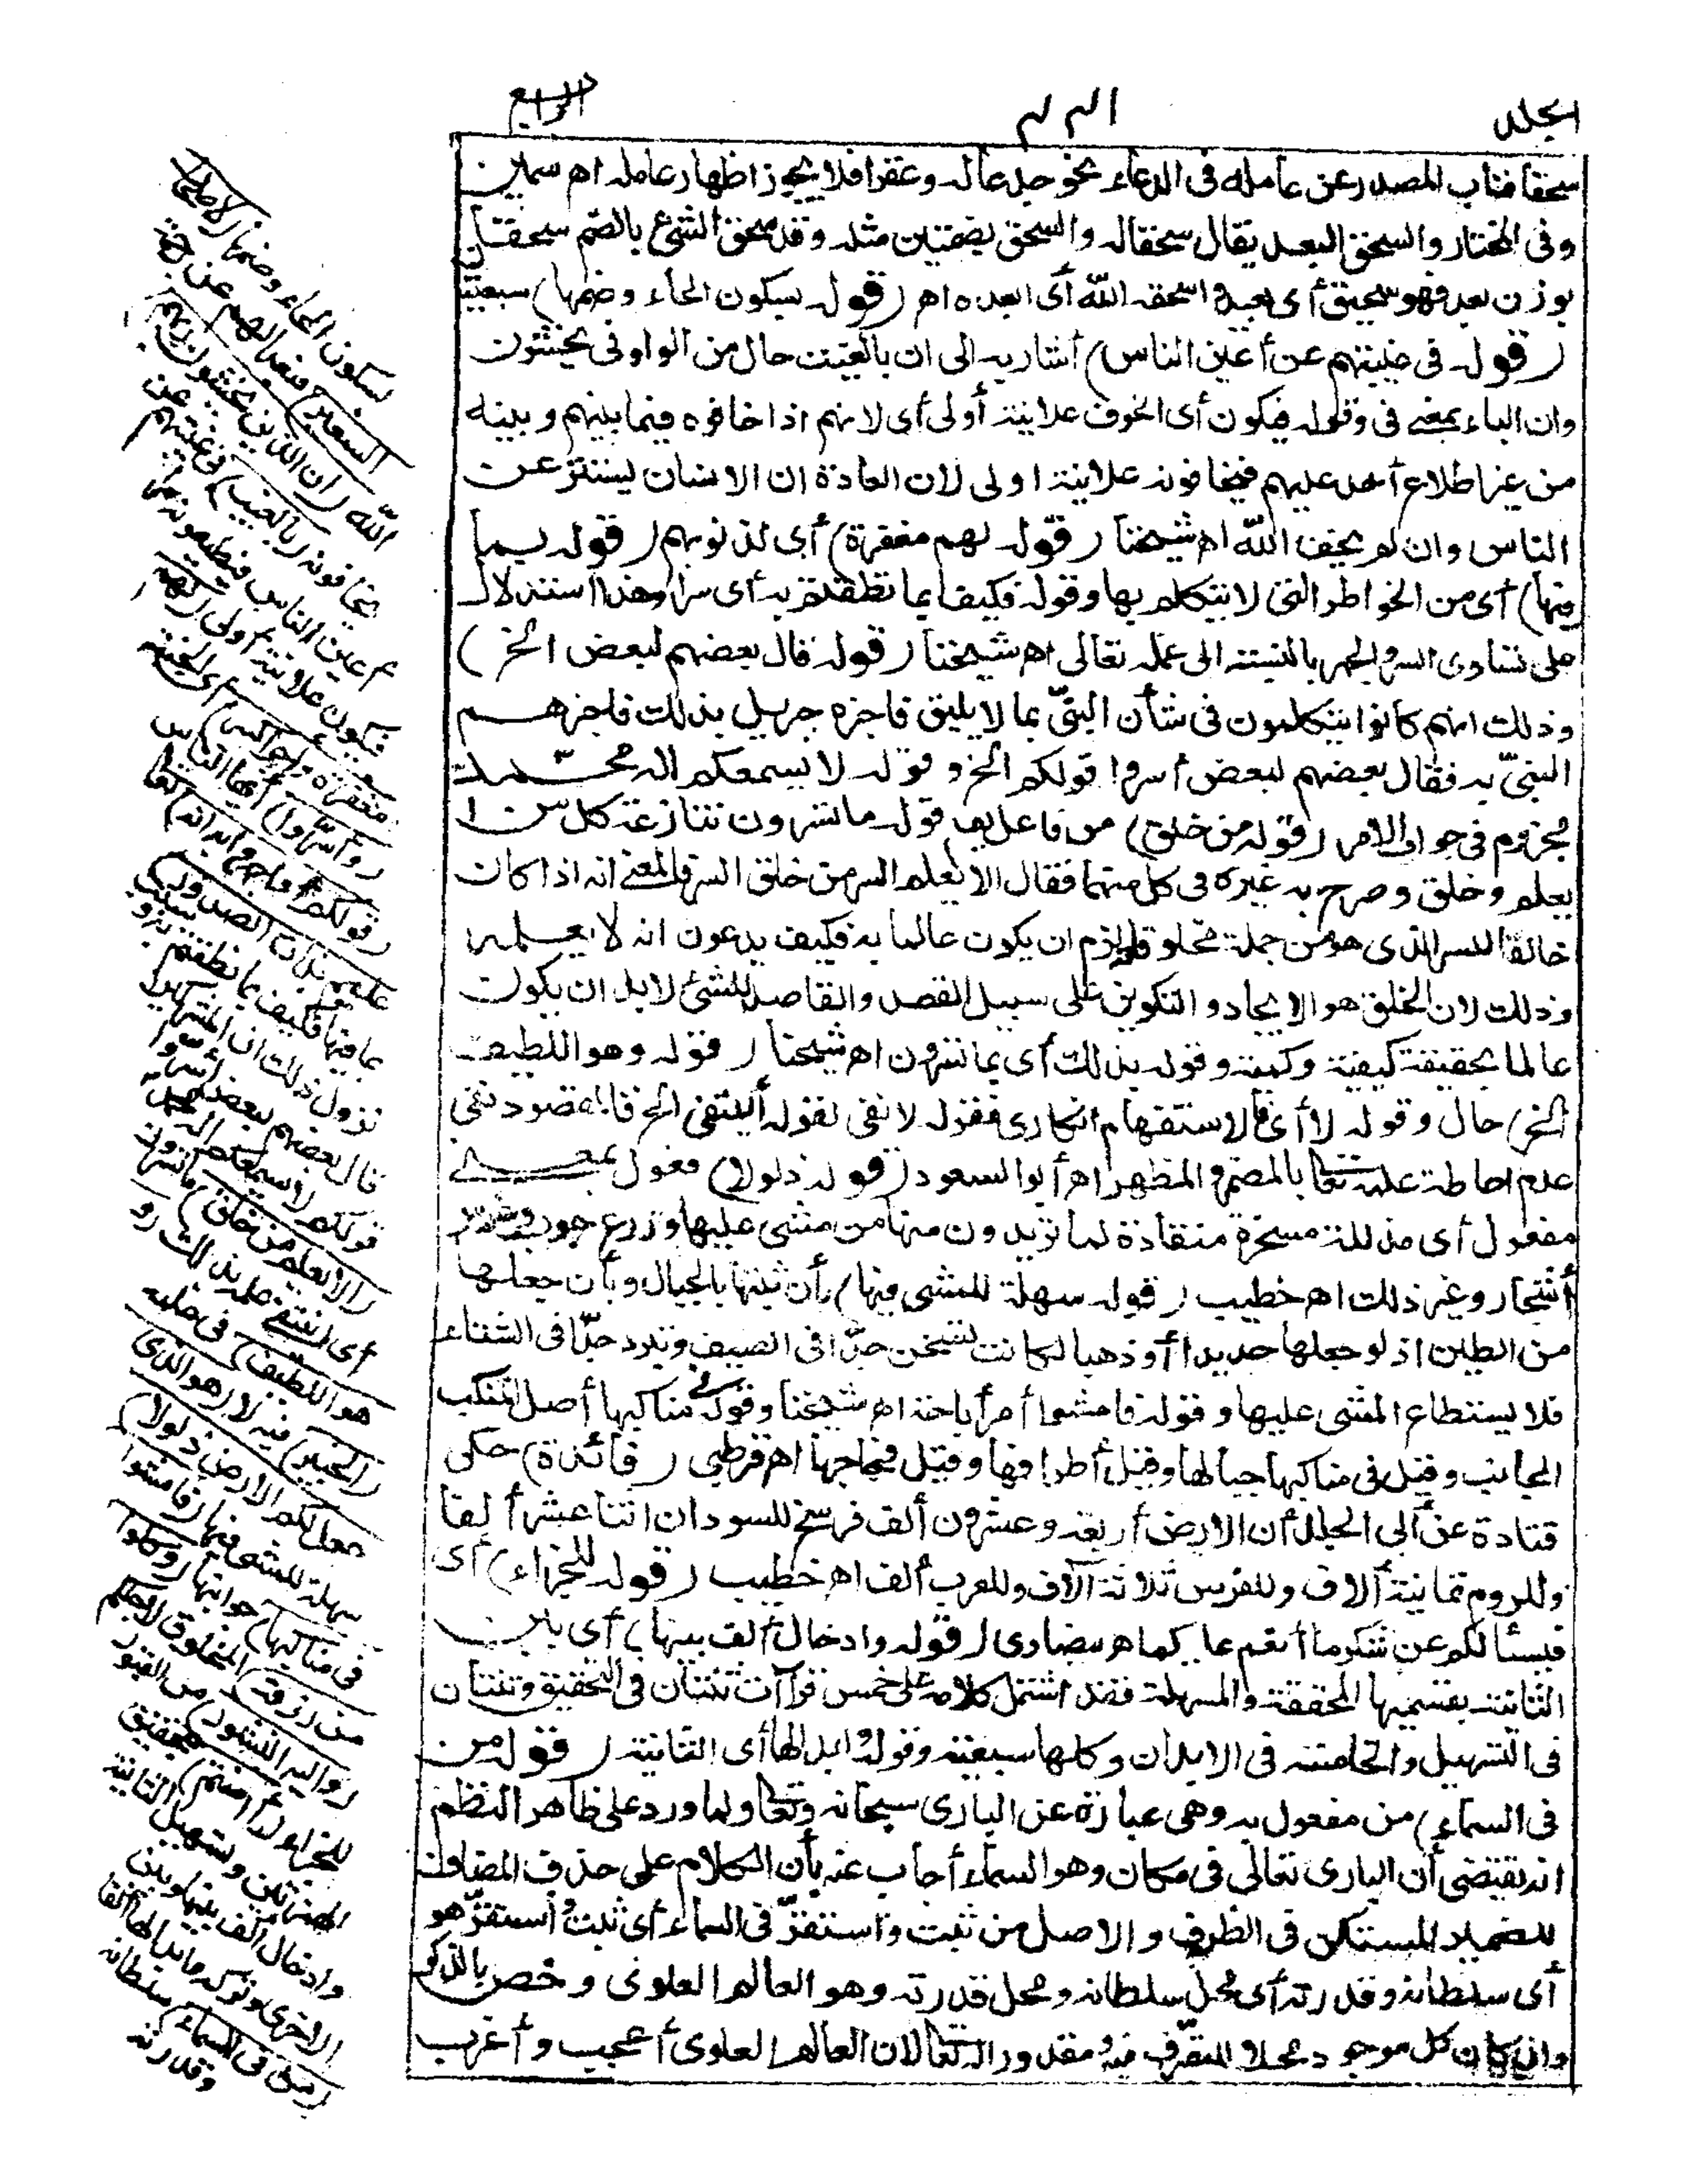 الجلد
الرابع
سحقا فناب المصدر عن عامله فى الدعاء نحو جدعاله وعقرا فلا يجوز اظهار عامله اه سمين
وفى المختار والسحق البعد يقال سحقاله والسحق بضمتين مثله وقد سحق الشئ بالضم سحقا
بوزن بعد فهو سحيق أى بعيد واسحقه الله أى ابعده اه (قوله بسكون الحاء وضمها) سبعيتا
(قوله فى غيبتهم عن أعين الناس) أشار به الى ان بالغيب حال من الواو فى يخشون
وان الباء بمعنى فى وقوله فيكون أى الخوف علانية أولى أى لانهم اذا خافوه فيما بينهم وبينه
من غير اطلاع أحد عليهم فيخافونه علانية اولى لان العادة ان الانسان يستتر عن
الناس وان لم يخف الله اه شيخنا (قوله لهم مغفرة) أى لذنوبهم (قوله بما
فيها) أى من الخواطر التى لا يتكلم بها وقوله فكيف بما نطقتم به أى سرا وهذا استدلال
على تساوى السر والجهر بالنسبة الى علمه تعالى اه شيخنا (قوله قال بعضهم لبعض الخ)
وذلك انهم كانوا يتكلمون فى شأن النبىّ بما لا يليق فاخبره جبريل بذلك فاخبرهم
النبىّ به فقال بعضهم لبعض أسروا قولكم الخ وقوله لا يسمعكم اله محمد
مجزوم فى جواب الامر (قوله من خلق) من فاعل يعلم قوله ما تسرون تنازعه كل من
يعلم وخلق وصرح به غيره فى كل منهما فقال الا يعلم السر من خلق السر والمعنى انه اذا كان
خالقا للسر الذى هو من جملة مخلوقاته لزم ان يكون عالما به فكيف يدعون انه لا يعلمه
وذلك لان الخلق هو الايجاد و التكوين على سبيل القصد والقاصد للشئ لابد ان يكون
عالما بحقيقة كيفية وكمية وقوله بذلك أى بما تسرون اه شيخنا (قوله وهو اللطيف
الخ) حال وقوله لا أى فالاستفهام انكارى فقوله لا نفى لقوله أينتفى الخ فالمقصود نفى
عدم احاطة علمه تعالى بالمضمر والمظهر اه أبو السعود (قوله ذلولا) فعول بمعنى
مفعول أى مذللة مسخرة منقادة لما تريدون منها من مشى عليها وزرع حبوب وغرس
أشجار وغير ذلك اه خطيب (قوله سهلة للمشى فيها) بأن ثبتها بالجبال وبأن جعلها
من الطين اذ لو جعلها حديدا أو ذهبا لكانت تسخن جدّا فى الصيف وتبرد جدّا فى الشتاء
فلا يستطاع المشى عليها وقوله فامشوا أمر أباحة اه شيخنا وقوله فى مناكبها أصل المنكب
الجانب وقيل فى مناكبها جبالها وقيل أطرافها وقيل فجاجها اه قرطبى (فائدة) حكى
قتادة عن أبى الجلد أن الارض أربعة وعشرون ألف فرسخ للسودان اثنا عشر ألفا
وللروم ثمانية آلاف وللفرس ثلاثة آلاف وللعرب ألف اه خطيب (قوله للجزاء) أى
فيسئالكم عن شكر ما أنعم عليكم اه بيضاوى (قوله وادخال ألف بينها) أى بين
الثانية بقسميها المحققة والمسهلة فقد اشتمل كلامه على خمس قرآآت ثنتان فى التحقيق وثنتان
فى التسهيل والخامسة فى الابدال وكلها سبعية وقوله وابدالها أى الثانية (قوله من
فى السماء) من مفعول به وهى عبارة عن البارى سبحانه وتعالى ولما ورد على ظاهر النظم
انه يقتضى أن البارى تعالى فى مكان وهو السماء أجاب عنه بأن الكلام على حذف المضاف
للضمير المستكن فى الظرف و الاصل من ثبت واستقرّ فى السماء أى ثبت واستقرّ هو
أى سلطانه وقدرته أى محل سلطانه ومحل قدرته وهو العالم العلوى وخص بالذكر
وان كان كل موجود محلا للتصرّف فيه ومقدورا له تعالى لان العالم العلوى أعجب وأغرب
بسكون الحاء وضمها (لاصحاب
السعير) فبعدا لهم عن رحمة
الله (ان الذين يخشون ربهم)
يخافونه (بالغيب) فى غيبتهم عن
أعين الناس فيطيعونه سرا
فيكون علانية أولى (لهم
مغفرة وأجر كبير) أى الجنة
(وأسروا) أيها الناس
(قولكم أو اجهروا به انه) تعالى
(عليم بذات الصدور)
بما فيها فكيف بما نطقتم به و
نزول ذلك ان المشركين
قال بعضهم لبعض أسروا
قولكم لا يسمعكم اله محمد
(ألا يعلم من خلق) ما تسرون
أى أينتفى علمه بذلك (و
هو اللطيف) فى علمه
(الخبير) فيه لا (هو الذى
جعل لكم الارض ذلولا)
سهلة للمشى فيها (فامشوا
فى مناكبها) جوانبها (وكلوا
من رزقه) المخلوق لاجلكم
(واليه النشور) من القبور
للجزاء (أأمنتم) بتحقيق
الهمزتين وتسهيل الثانية
وادخال ألف بينها وبين
الاخرى وتركه وابدالها ألفا
(من فى السماء) سلطانه
وقدرته